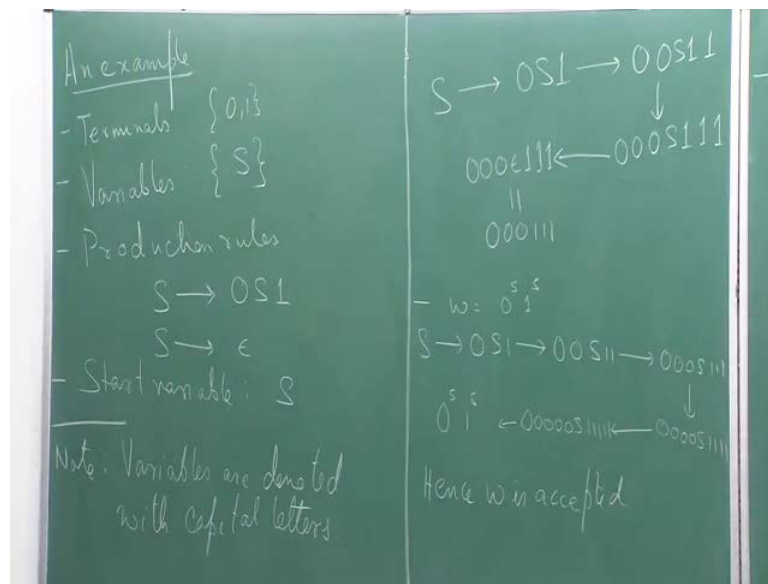 An example
- Terminals {0,1}
- Variables: {S}
- Production rules
S → 0S1
S → ϵ
- Start variable: S
Note: Variables are denoted
with capital letters
S → 0S1 → 00S11
↓
000ϵ111 ← 000S111
||
000111
- w = 0⁵1⁵
S → 0S1 → 00S11 → 000S111
↓
0⁵1⁵ ← 00000S11111 ← 0000S1111
Hence w is accepted